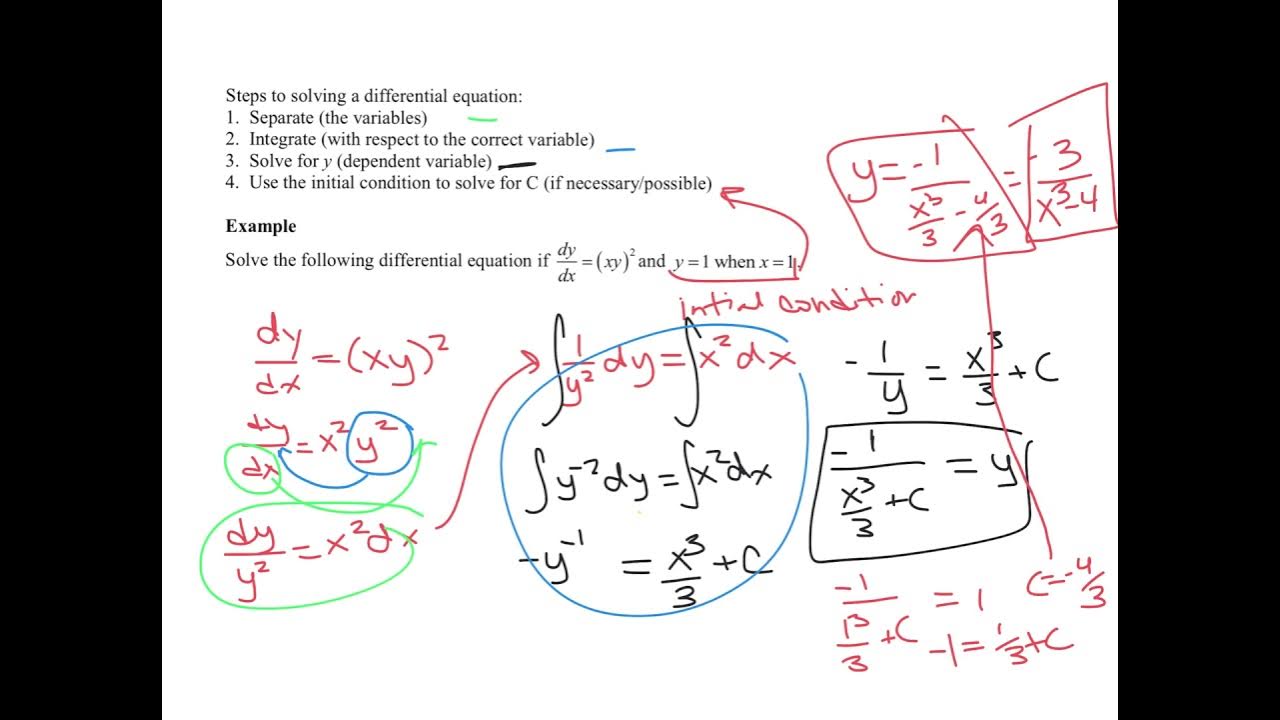 Steps to solving a differential equation:
1. Separate (the variables)
2. Integrate (with respect to the correct variable)
3. Solve for y (dependent variable)
4. Use the initial condition to solve for C (if necessary/possible)
Example
Solve the following differential equation if dy/dx = (xy)² and y = 1 when x = 1.
intial condition
dy/dx = (xy)²
dy/dx = x² y²
dy/y² = x² dx
∫ 1/y² dy = ∫ x² dx
∫ y⁻² dy = ∫ x² dx
-y⁻¹ = x³/3 + C
- 1/y = x³/3 + C
-1/(x³/3 + C) = y
-1/(1³/3 + C) = 1
-1 = 1/3 + C
C = -4/3
y = -1/(x³/3 - 4/3) = -3/(x³-4)